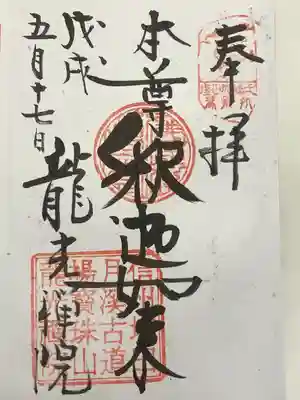 奉拝
本尊
釈迦如来
戊戌
五月十七日
龍光禅院